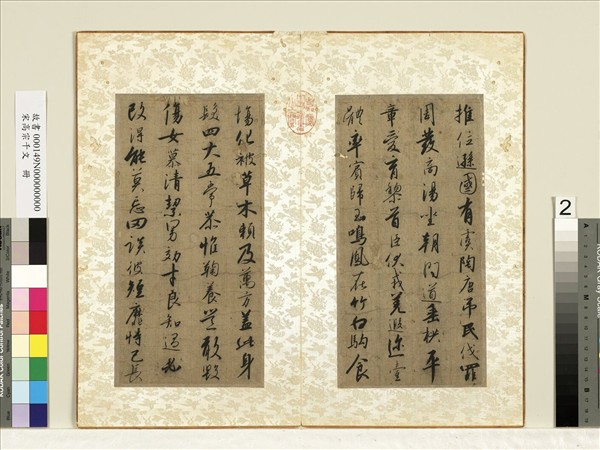 推位遜國有虞陶唐弔民伐罪
周發商湯坐朝問道垂拱平
章愛育黎首臣伏戎羌遐迩壹
體率賓歸王鳴鳳在竹白駒食
場化被草木賴及萬方蓋此身
髮四大五常恭惟鞠養豈敢毀
傷女慕清潔男効才良知過必
改得能莫忘罔談彼短靡恃己長
故書000149N000000000
宋高宗千文 冊
2